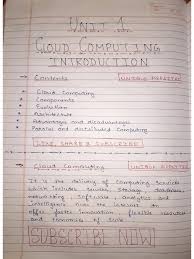 UNIT 1
CLOUD COMPUTING
INTRODUCTION
→ Contents
• Cloud Computing
• Components
• Evolution
• Architecture
• Advantages and disadvantages
• Parallel and distributed computing
LIKE, SHARE & SUBSCRIBE
→ Cloud Computing
It is the delivery of computing services
which includes servers, storage, databases,
networking, Software, analytics and
intelligence over the internet to
offer faster innovation, flexible resources
and economies of scale.
SUBSCRIBE NOW!